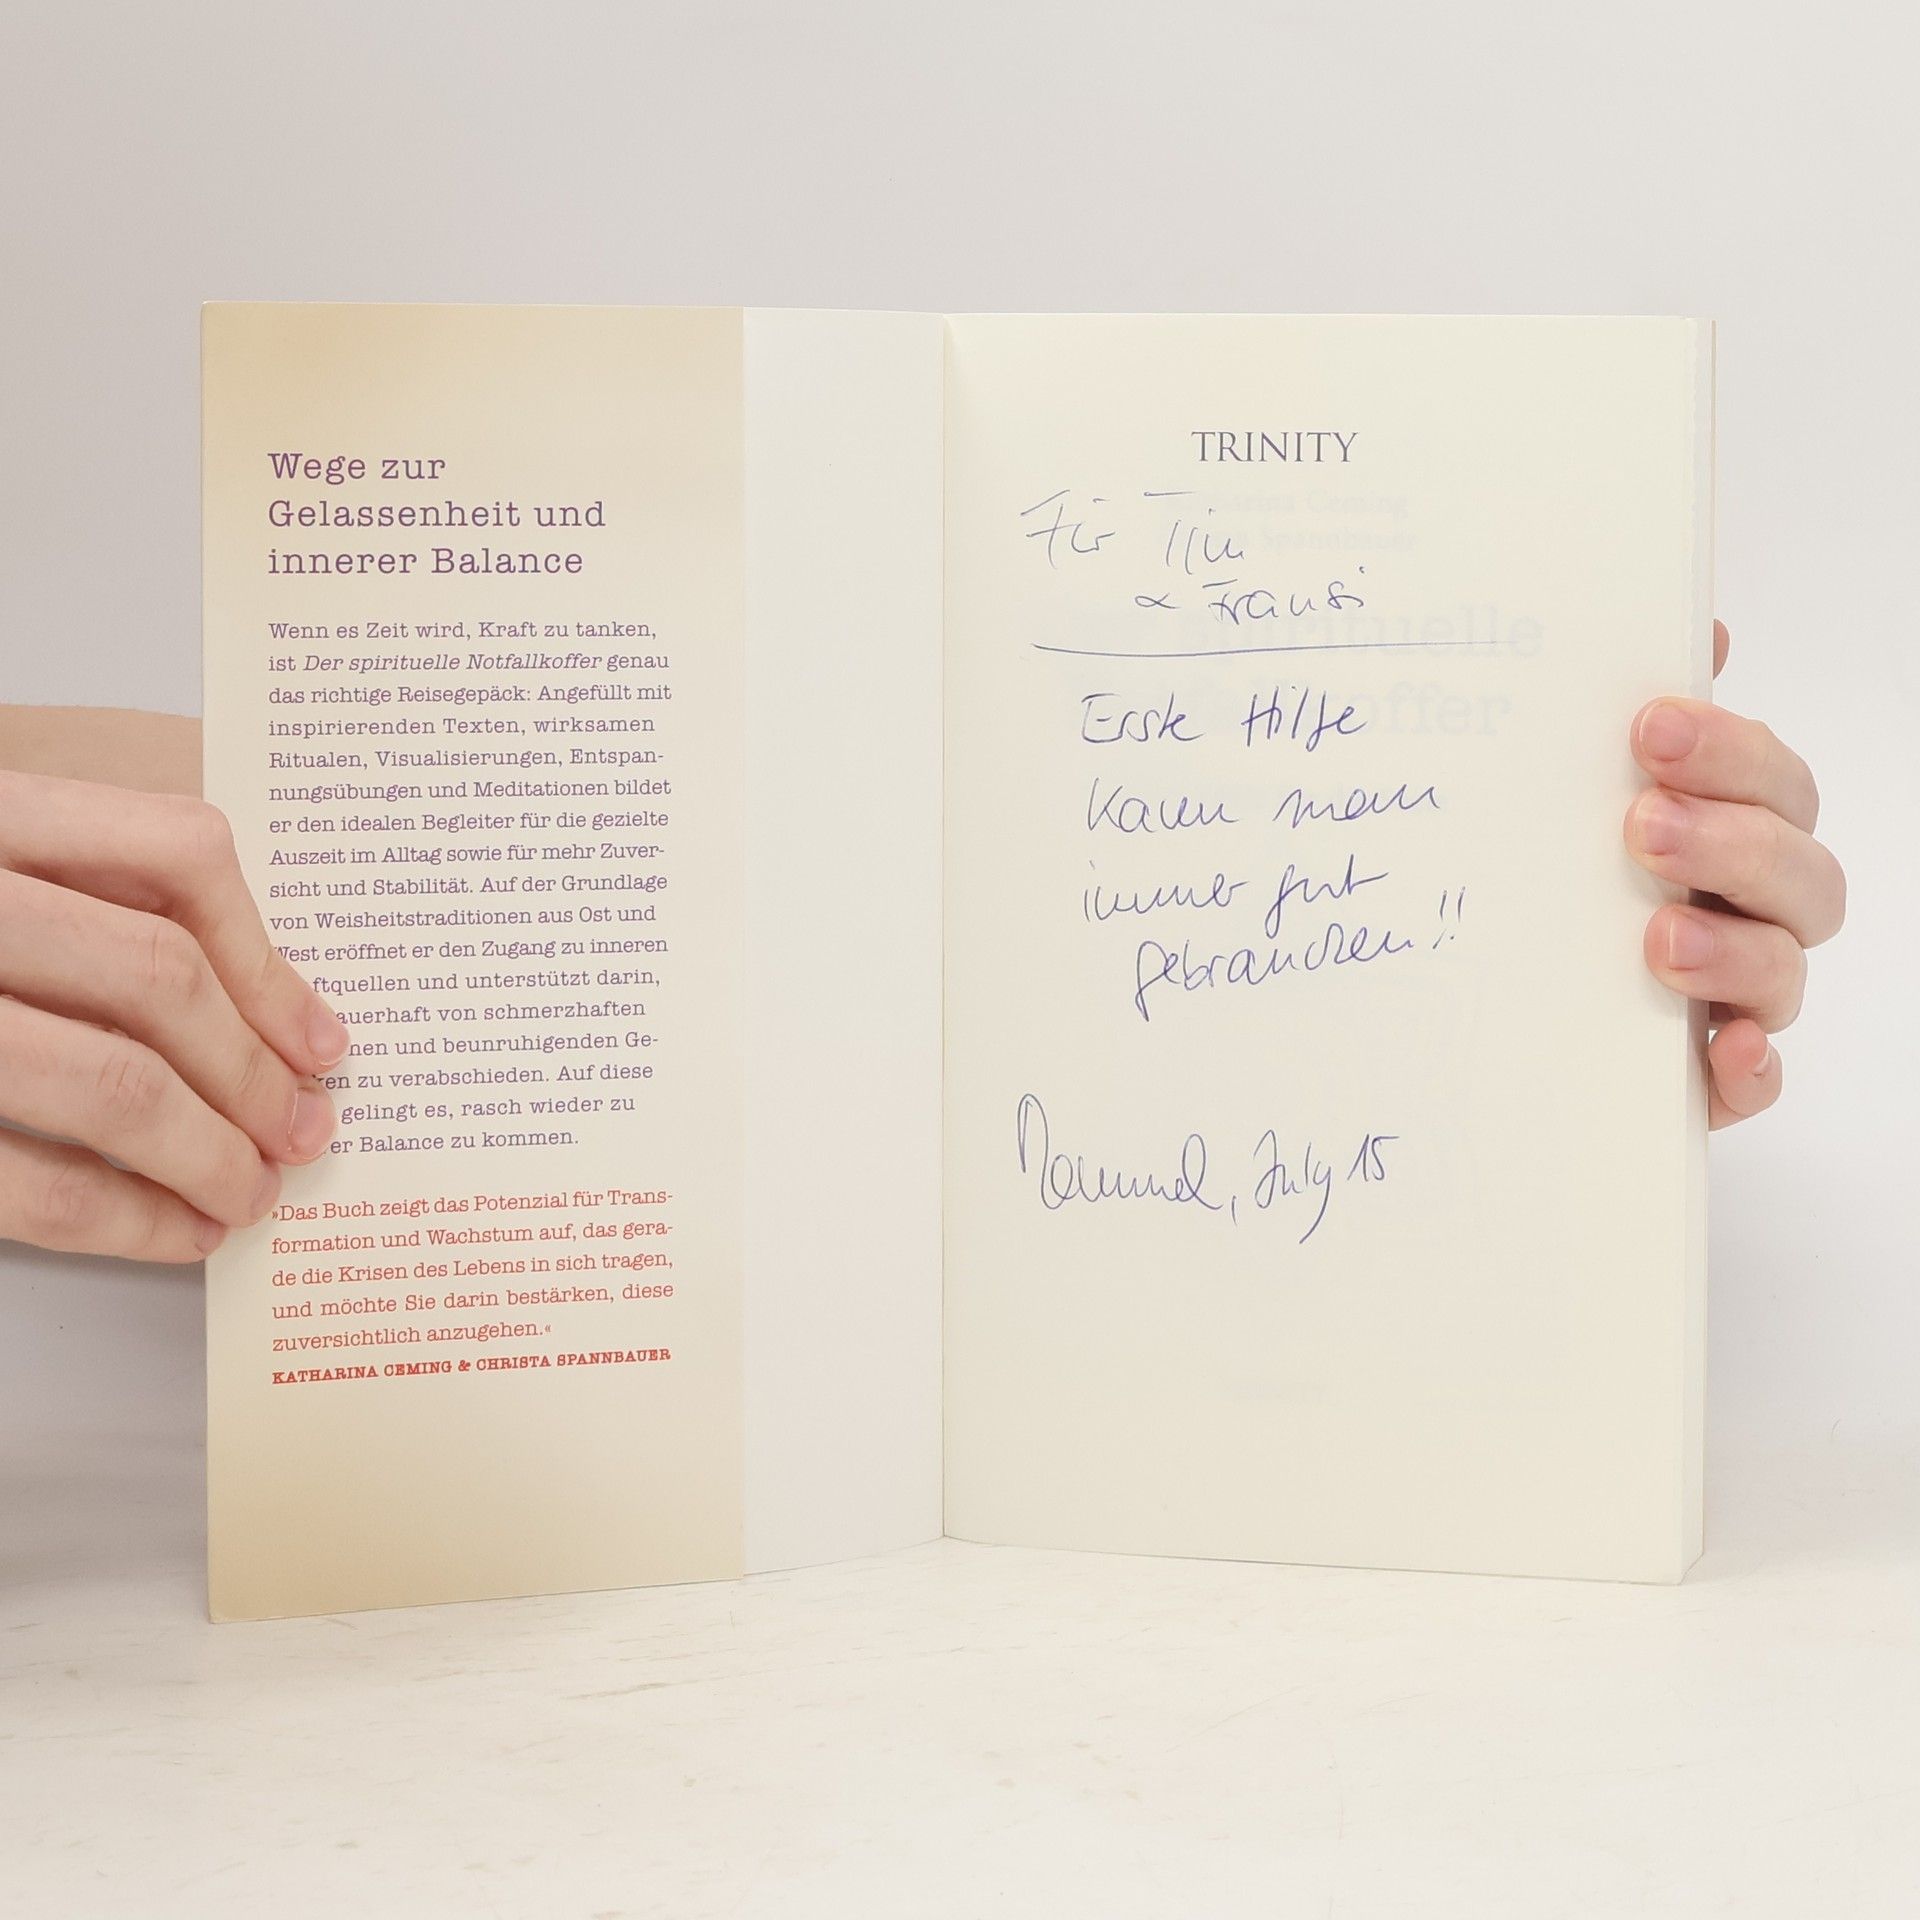 Wege zur
Gelassenheit und
innerer Balance
Wenn es Zeit wird, Kraft zu tanken,
ist Der spirituelle Notfallkoffer genau
das richtige Reisegepäck: Angefüllt mit
inspirierenden Texten, wirksamen
Ritualen, Visualisierungen, Entspan-
nungsübungen und Meditationen bildet
er den idealen Begleiter für die gezielte
Auszeit im Alltag sowie für mehr Zuver-
sicht und Stabilität. Auf der Grundlage
von Weisheitstraditionen aus Ost und
West eröffnet er den Zugang zu inneren
ftquellen und unterstützt darin,
auerhaft von schmerzhaften
nen und beunruhigenden Ge-
ken zu verabschieden. Auf diese
gelingt es, rasch wieder zu
er Balance zu kommen.
»Das Buch zeigt das Potenzial für Trans-
formation und Wachstum auf, das gera-
de die Krisen des Lebens in sich tragen,
und möchte Sie darin bestärken, diese
zuversichtlich anzugehen.«
KATHARINA CEMING & CHRISTA SPANNBAUER
TRINITY
Für Tim
& Fransi
Erste Hilfe
kann man
immer gut
gebrauchen!!
, July 15